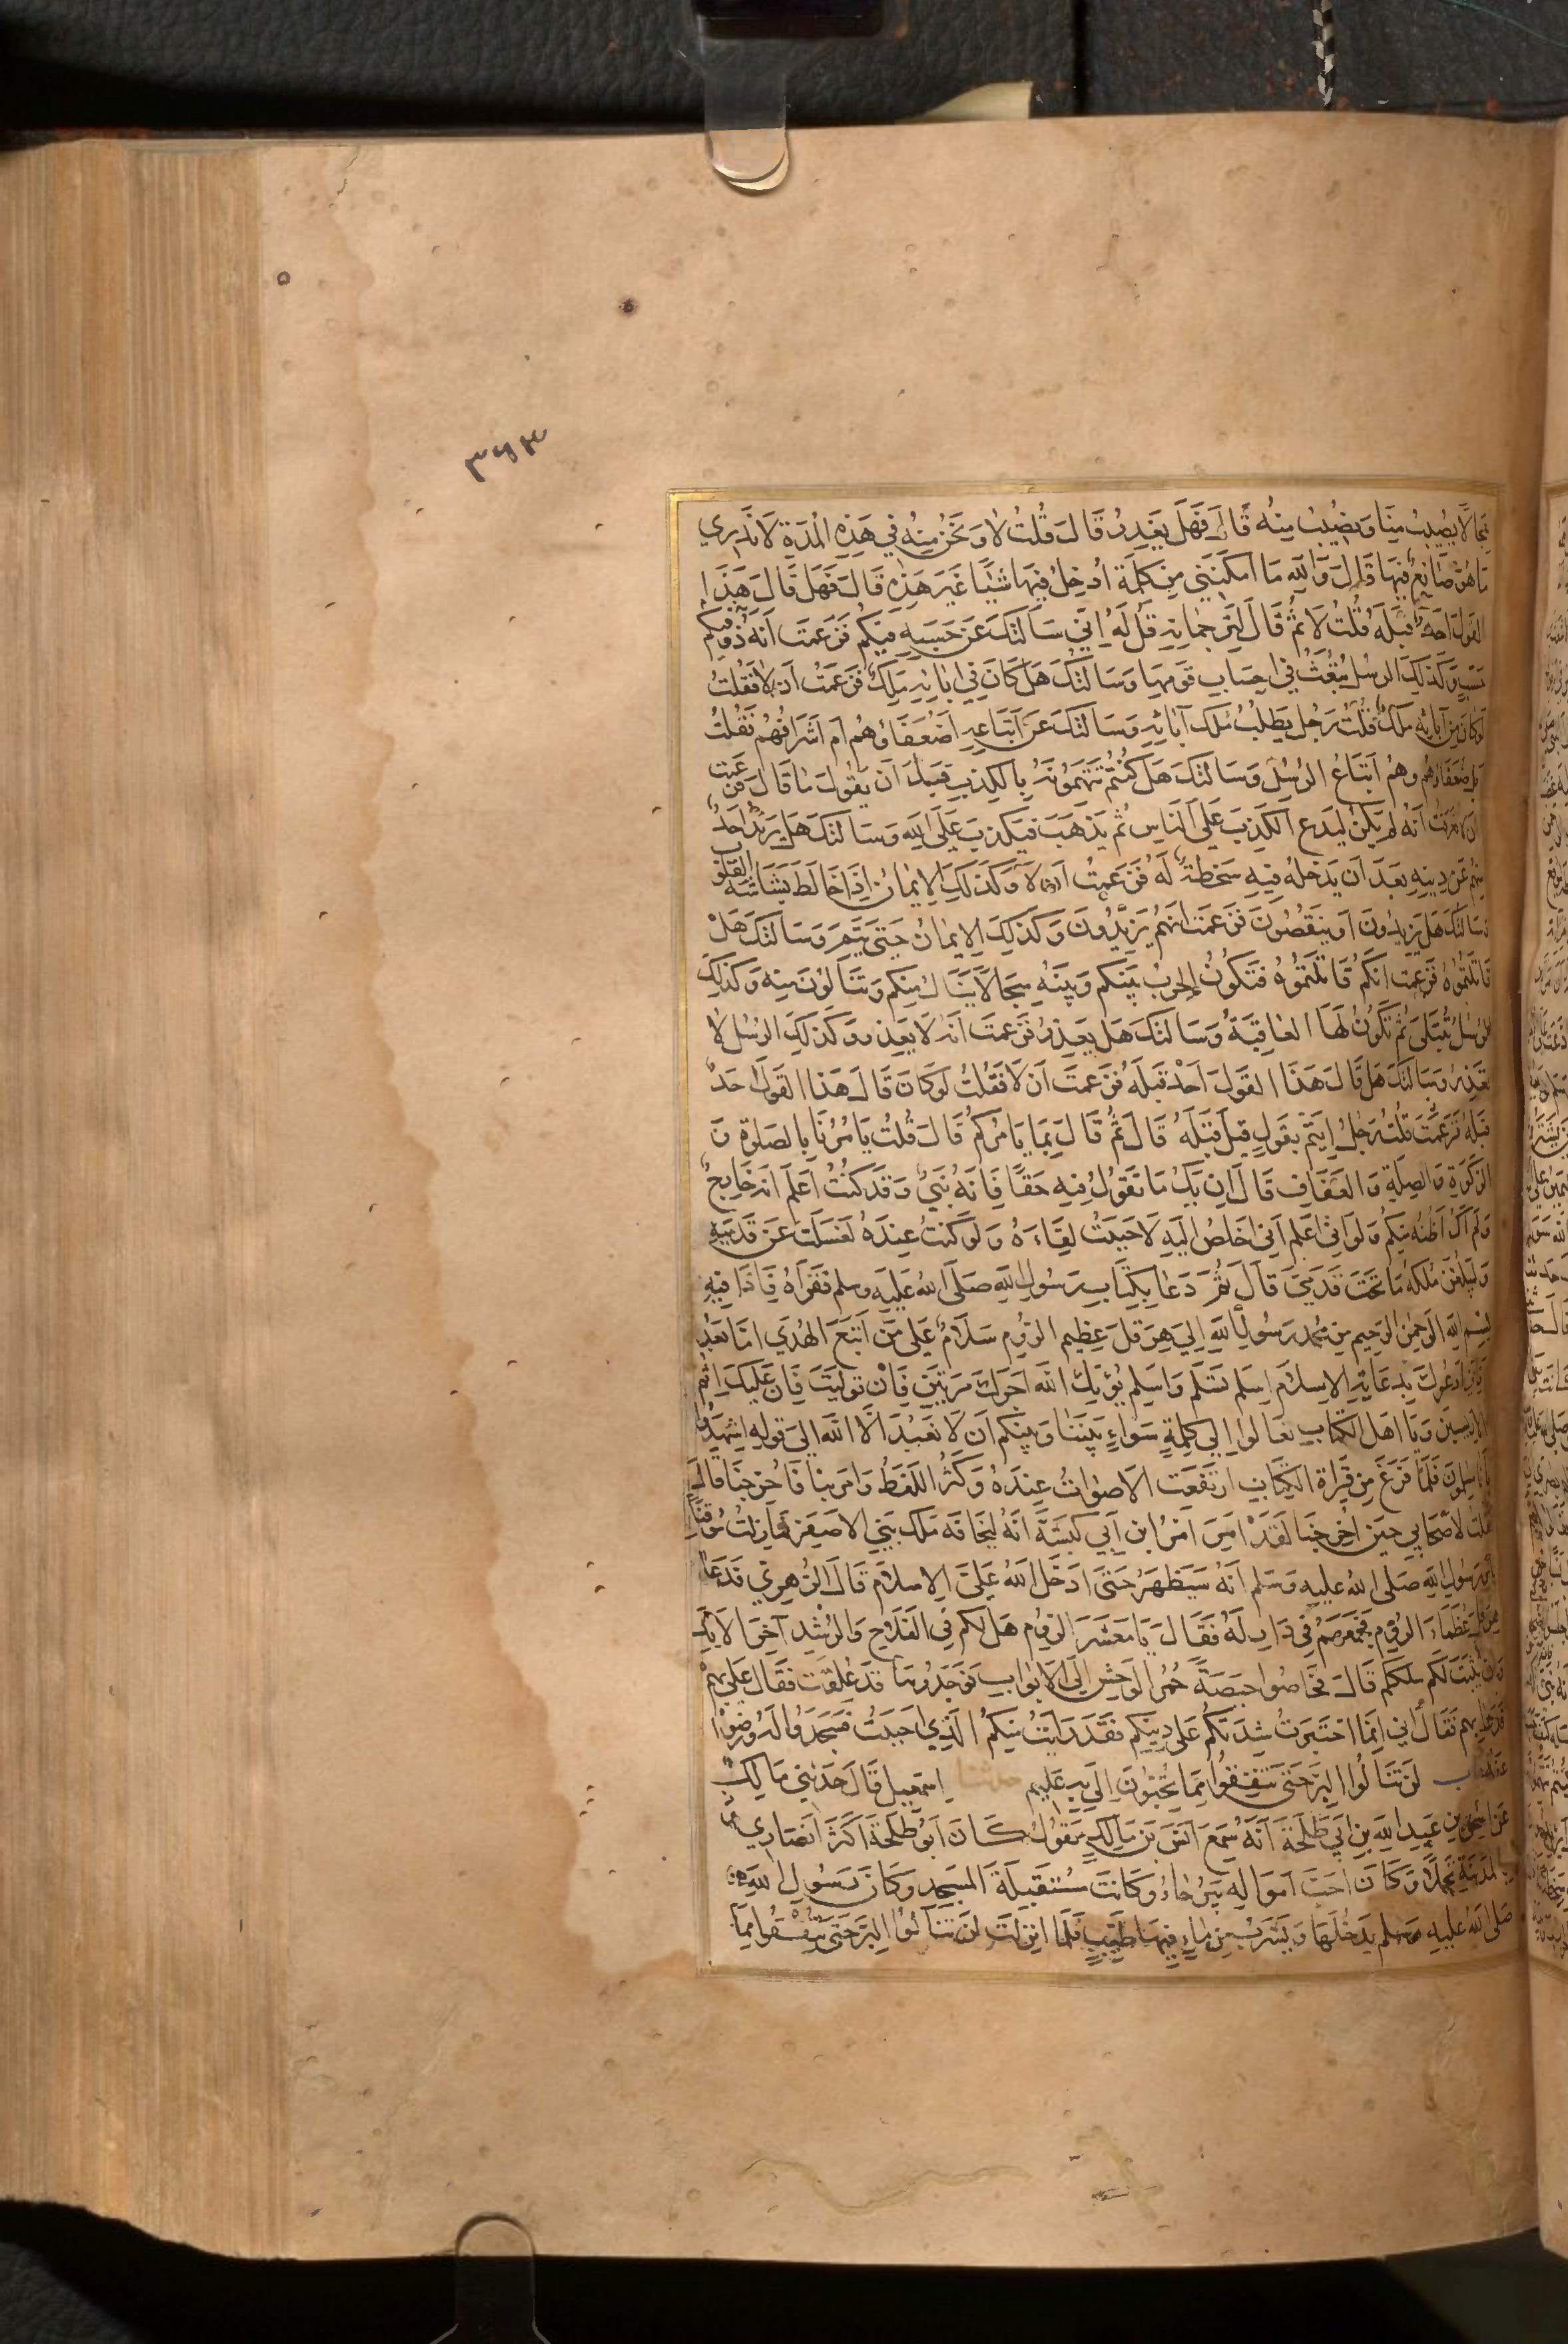 ٣٦٣
سجالا يصيب منا ونصيب منه قال فهل يغدر قال قلت لا ونحن منه في هذه المدة لا ندري
ما هو صانع فيها قال والله ما امكنني من كلمة ادخل فيها شيئا غير هذه قال فهل قال هذا
القول احد قبله قلت لا ثم قال لترجمانه قل له اني سالتك عن حسبه فيكم فزعمت انه ذو
حسب وكذلك الرسل تبعث في احساب قومها وسالتك هل كان في ابائه ملك فزعمت ان لا فقلت
لو كان من آبائه ملك قلت رجل يطلب ملك آبائه وسالتك عن اتباعه اضعفاؤهم ام اشرافهم فقلت
بل ضعفاؤهم وهم اتباع الرسل وسالتك هل كنتم تتهمونه بالكذب قبل ان يقول ما قال فزعمت
ان لا فعرفت انه لم يكن ليدع الكذب على الناس ثم يذهب فيكذب على الله وسالتك هل يرتد احد
منهم عن دينه بعد ان يدخله فيه سخطة له فزعمت ان لا وكذلك الايمان اذا خالط بشاشة القلوب
وسالتك هل يزيدون او ينقصون فزعمت انهم يزيدون وكذلك الايمان حتى يتم وسالتك هل
قاتلتموه فزعمت انكم قاتلتموه فتكون الحرب بينكم وبينه سجالا ينال منكم وتنالون منه وكذلك
الرسل تبتلى ثم تكون لها العاقبة وسالتك هل يغدر فزعمت انه لا يغدر وكذلك الرسل لا
تغدر وسالتك هل قال هذا القول احد قبله فزعمت ان لا فقلت لو كان قال هذا القول احد
قبله فزعمت قلت رجل ايتم بقول قيل قبله قال ثم قال بما يامركم قال قلت يامرنا بالصلوة و
الزكوة والصلة والعفاف قال ان يك ما تقول فيه حقا فانه نبي وقد كنت اعلم انه خارج
ولم اك اظنه منكم ولو اني اعلم اني اخلص اليه لاحببت لقاءه ولو كنت عنده لغسلت عن قدميه
وليبلغن ملكه ما تحت قدمي قال ثم دعا بكتاب رسول الله صلى الله عليه وسلم فقراه فاذا فيه
بسم الله الرحمن الرحيم من محمد رسول الله الى هرقل عظيم الروم سلام على من اتبع الهدى اما بعد
فاني ادعوك بدعاية الاسلام اسلم تسلم واسلم يؤتك الله اجرك مرتين فان توليت فان عليك اثم
الاريسين ويا اهل الكتاب تعالوا الى كلمة سواء بيننا وبينكم ان لا نعبد الا الله الى قوله اشهدوا
بانا مسلمون فلما فرغ من قراة الكتاب ارتفعت الاصوات عنده وكثر اللغط وامر بنا فاخرجنا قال
قلت لاصحابي حين اخرجنا لقد امر امر ابن ابي كبشة انه ليخافه ملك بني الاصفر فما زلت موقنا
بامر رسول الله صلى الله عليه وسلم انه سيظهر حتى ادخل الله علي الاسلام قال الزهري فدعا
هرقل عظماء الروم فجمعهم في دار له فقال يا معشر الروم هل لكم في الفلاح والرشد آخر الابد
وان يثبت لكم ملككم قال فحاصوا حيصة حمر الوحش الى الابواب فوجدوها قد غلقت فقال علي بهم
فدعا بهم فقال اني انما اختبرت شدتكم على دينكم فقد رايت منكم الذي احببت فسجدوا له ورضوا
عنه باب لن تنالوا البر حتى تنفقوا مما تحبون الى به عليم حدثنا اسمعيل قال حدثني مالك
عن اسحق بن عبد الله بن ابي طلحة انه سمع انس بن مالك يقول كان ابو طلحة اكثر انصاري
بالمدينة نخلا وكان احب امواله بيرحاء وكانت مستقبلة المسجد وكان رسول الله
صلى الله عليه وسلم يدخلها ويشرب من ماء فيها طيب فلما انزلت لن تنالوا البر حتى تنفقوا مما